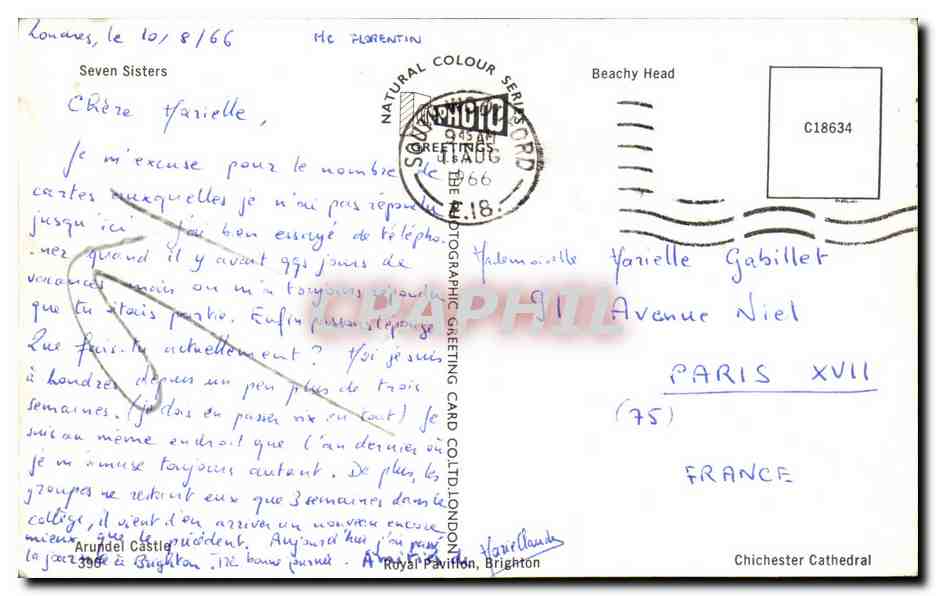 Londres, le 10/8/66
MC FLORENTIN
Seven Sisters
NATURAL COLOUR SERIES
Beachy Head
C18634
PHOTO
GREETINGS
SOUTH WOODFORD
9 45 AM
11 AUG
1966
E.18.
THE PHOTOGRAPHIC GREETING CARD CO., LTD. LONDON
Chère Marielle,
Je m'excuse pour le nombre de
cartes auxquelles je n'ai pas répondu
jusqu'ici. J'ai bon essayé de télépho.
nez quand il y avait qqs jours de
vacances mais on m'a toujours répondu
que tu étais partie. Enfin passons l'éponge.
Que fais-tu actuellement ? Moi je suis
à Londres depuis un peu plus de trois
semaines. (je dois en passer six en tout) Je
suis au même endroit que l'an dernier où
je m'amuse toujours autant. De plus, les
groupes ne restant eux que 3 semaines dans le
collège, il vient d'en arriver un nouveau encore
mieux que le précédent. Aujourd'hui j'ai passé
la journée à Brighton. Très bonne journée.
Mademoiselle Marielle Gabillet
91 Avenue Niel
PARIS XVII
(75)
FRANCE
CPAPHIL
Arundel Castle
390
Royal Pavilion, Brighton
Chichester Cathedral